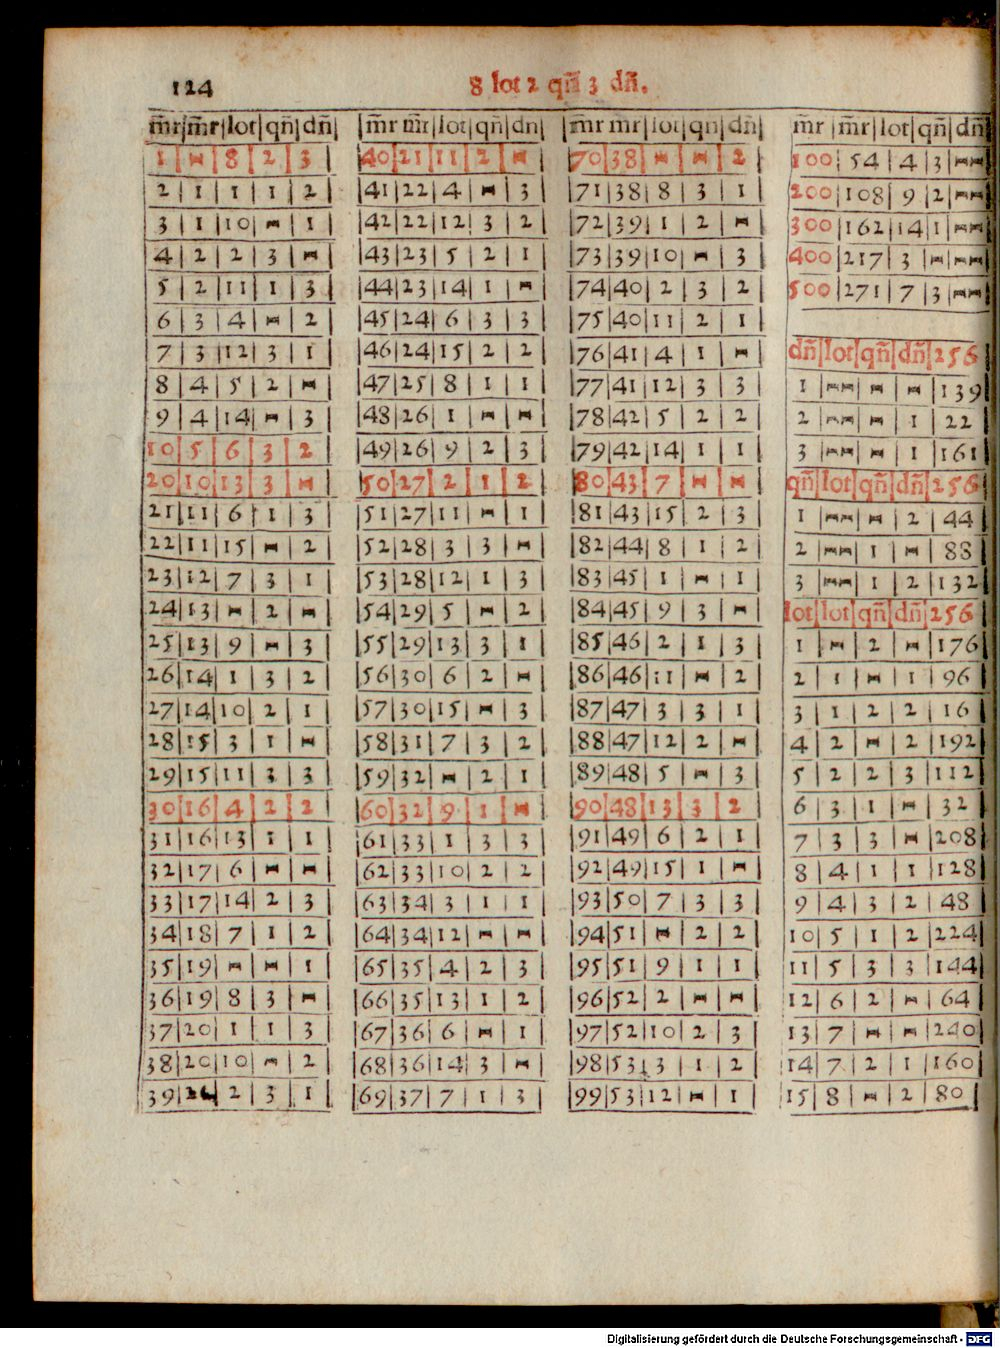 124
8 lot 2 qñ 3 dñ.
m̃r|m̃r|lot|qñ|dñ
1|-|8|2|3
2|1|1|1|2
3|1|10|-|1
4|2|2|3|-
5|2|11|1|3
6|3|4|-|2
7|3|12|3|1
8|4|5|2|-
9|4|14|-|3
10|5|6|3|2
20|10|13|3|-
21|11|6|1|3
22|11|15|-|2
23|12|7|3|1
24|13|-|2|-
25|13|9|-|3
26|14|1|3|2
27|14|10|2|1
28|15|3|1|-
29|15|11|3|3
30|16|4|2|2
31|16|13|1|1
32|17|6|-|-
33|17|14|2|3
34|18|7|1|2
35|19|-|-|1
36|19|8|3|-
37|20|1|1|3
38|20|10|-|2
39||2|3|1
m̃r m̃r|lot|qñ|dñ
40|21|11|2|-
41|22|4|-|3
42|22|12|3|2
43|23|5|2|1
44|23|14|1|-
45|24|6|3|3
46|24|15|2|2
47|25|8|1|1
48|26|1|-|-
49|26|9|2|3
50|27|2|1|2
51|27|11|-|1
52|28|3|3|-
53|28|12|1|3
54|29|5|-|2
55|29|13|3|1
56|30|6|2|-
57|30|15|-|3
58|31|7|3|2
59|32|-|2|1
60|32|9|1|-
61|33|1|3|3
62|33|10|2|2
63|34|3|1|1
64|34|12|-|-
65|35|4|2|3
66|35|13|1|2
67|36|6|-|1
68|36|14|3|-
69|37|7|1|3
m̃r mr|lot|qñ|dñ
70|38|-|-|2
71|38|8|3|1
72|39|1|2|-
73|39|10|-|3
74|40|2|3|2
75|40|11|2|1
76|41|4|1|-
77|41|12|3|3
78|42|5|2|2
79|42|14|1|1
80|43|7|-|-
81|43|15|2|3
82|44|8|1|2
83|45|1|-|1
84|45|9|3|-
85|46|2|1|3
86|46|11|-|2
87|47|3|3|1
88|47|12|2|-
89|48|5|-|3
90|48|13|3|2
91|49|6|2|1
92|49|15|1|-
93|50|7|3|3
94|51|-|2|2
95|51|9|1|1
96|52|2|-|-
97|52|10|2|3
98|53|3|1|2
99|53|12|-|1
m̃r|m̃r|lot|qñ|dñ
100|54|4|3|--
200|108|9|2|--
300|162|14|1|--
400|217|3|-|--
500|271|7|3|--
dñ|lot|qñ|dñ|256
1|--|-|-|139
2|--|-|1|22
3|--|-|1|161
qñ|lot|qñ|dñ|256
1|--|-|2|44
2|--|1|-|88
3|--|1|2|132
lot|lot|qñ|dñ|256
1|-|2|-|176
2|1|-|1|96
3|1|2|2|16
4|2|-|2|192
5|2|2|3|112
6|3|1|-|32
7|3|3|-|208
8|4|1|1|128
9|4|3|2|48
10|5|1|2|224
11|5|3|3|144
12|6|2|-|64
13|7|-|-|240
14|7|2|1|160
15|8|-|2|80
Digitalisierung gefördert durch die Deutsche Forschungsgemeinschaft - DFG